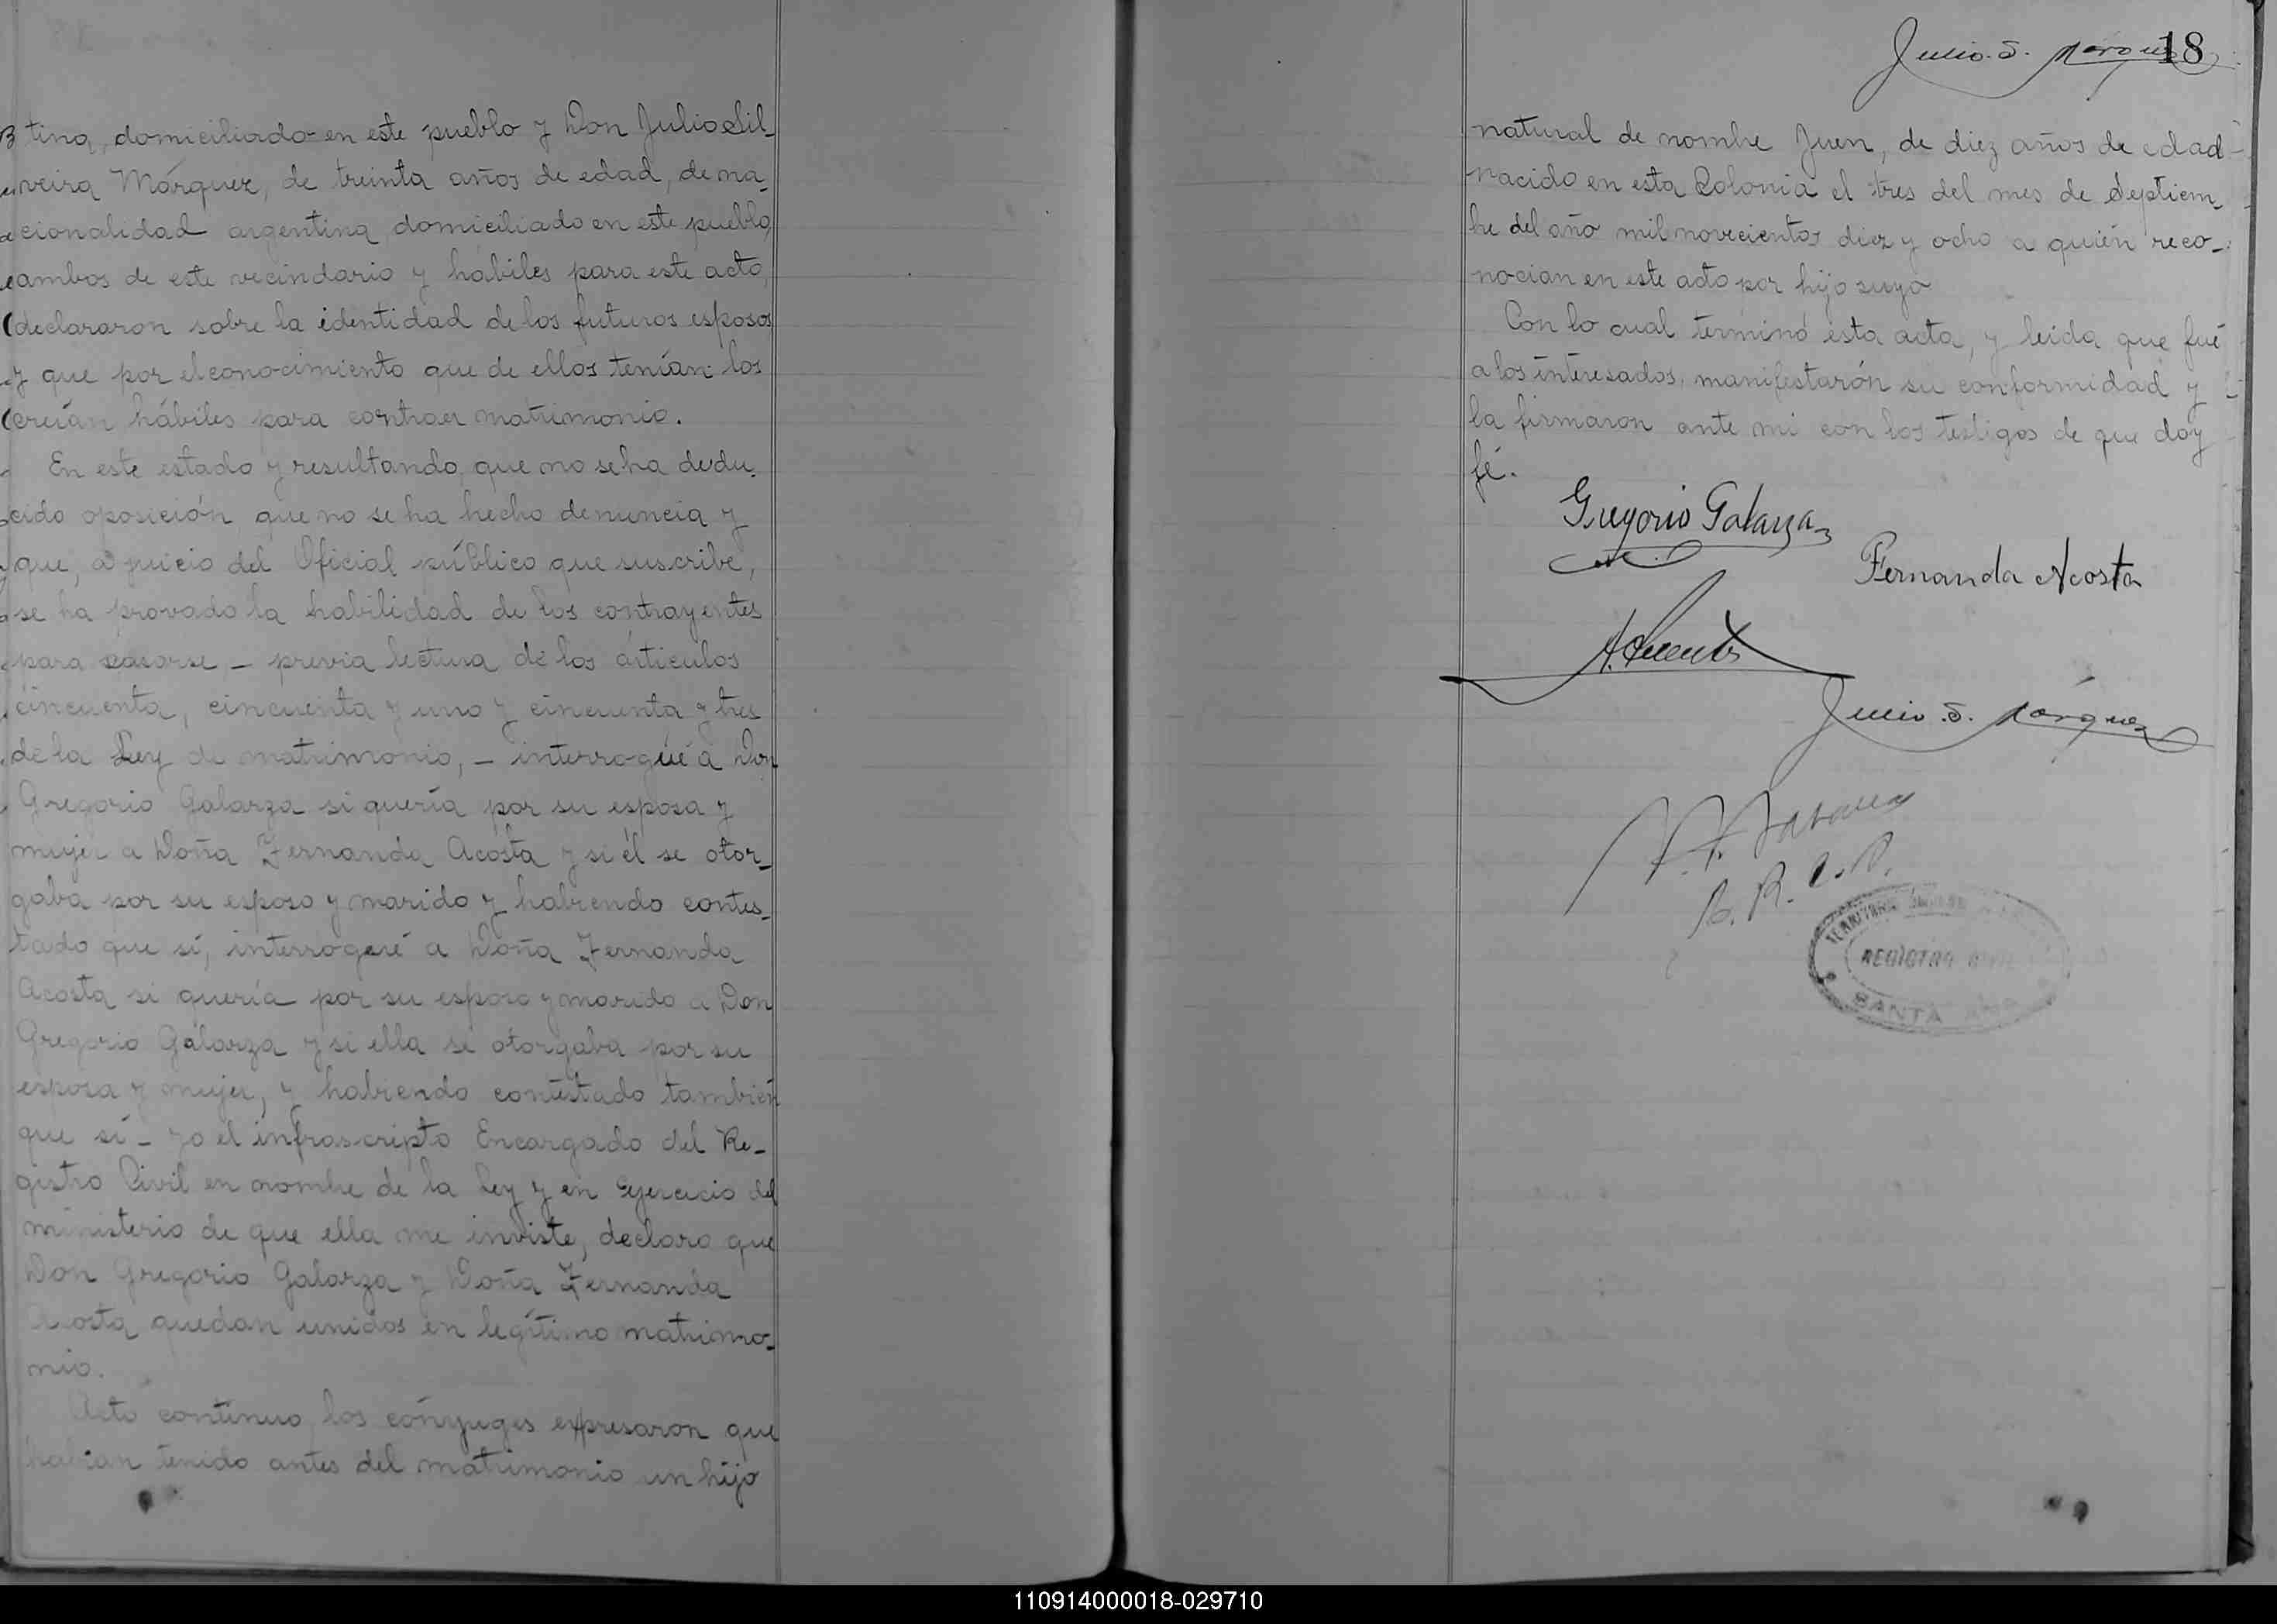 tina, domiciliado en este pueblo y Don Julio Sil_
veira Márquez, de treinta años de edad, de na_
cionalidad argentina, domiciliado en este pueblo,
ambos de este vecindario y hábiles para este acto,
declararon sobre la identidad de los futuros esposos
y que por el conocimiento que de ellos tenían los
creían hábiles para contraer matrimonio.
En este estado y resultando que no se ha dedu_
cido oposición que no se ha hecho denuncia y
que, a juicio del Oficial público que suscribe,
se ha provado la habilidad de los contrayentes
para casarse _ previa lectura de los artículos
cincuenta, cincuenta y uno y cincuenta y tres
de la Ley de matrimonio, _ interrogué a Don
Gregorio Galarza si quería por su esposa y
mujer a Doña Fernanda Acosta y si él se otor_
gaba por su esposo y marido y habiendo contes_
tado que sí, interrogué a Doña Fernanda
Acosta si quería por su esposo y marido a Don
Gregorio Galarza y si ella se otorgaba por su
esposa y mujer, y habiendo contestado también
que sí _ yo el infrascripto Encargado del Re_
gistro Civil en nombre de la Ley y en ejercicio del
ministerio de que ella me inviste, declaro que
Don Gregorio Galarza y Doña Fernanda
Acosta quedan unidos en legítimo matrimo_
nio.
Acto continuo los cónyuges expresaron que
habían tenido antes del matrimonio un hijo
Julio. S. Márquez
18
natural de nombre Juen, de diez años de edad
nacido en esta Colonia el tres del mes de Septiem_
bre del año mil novecientos diez y ocho a quién reco_
nocian en este acto por hijo suyo
Con lo cual terminó esta acta, y leida que fué
a los interesados, manifestarón su conformidad y
la firmaron ante mi con los testigos de que doy
fé.
Gregorio Galarza
Fernanda Acosta
Julio. S. Márquez
REGISTRO CIVIL
SANTA ANA
110914000018-029710